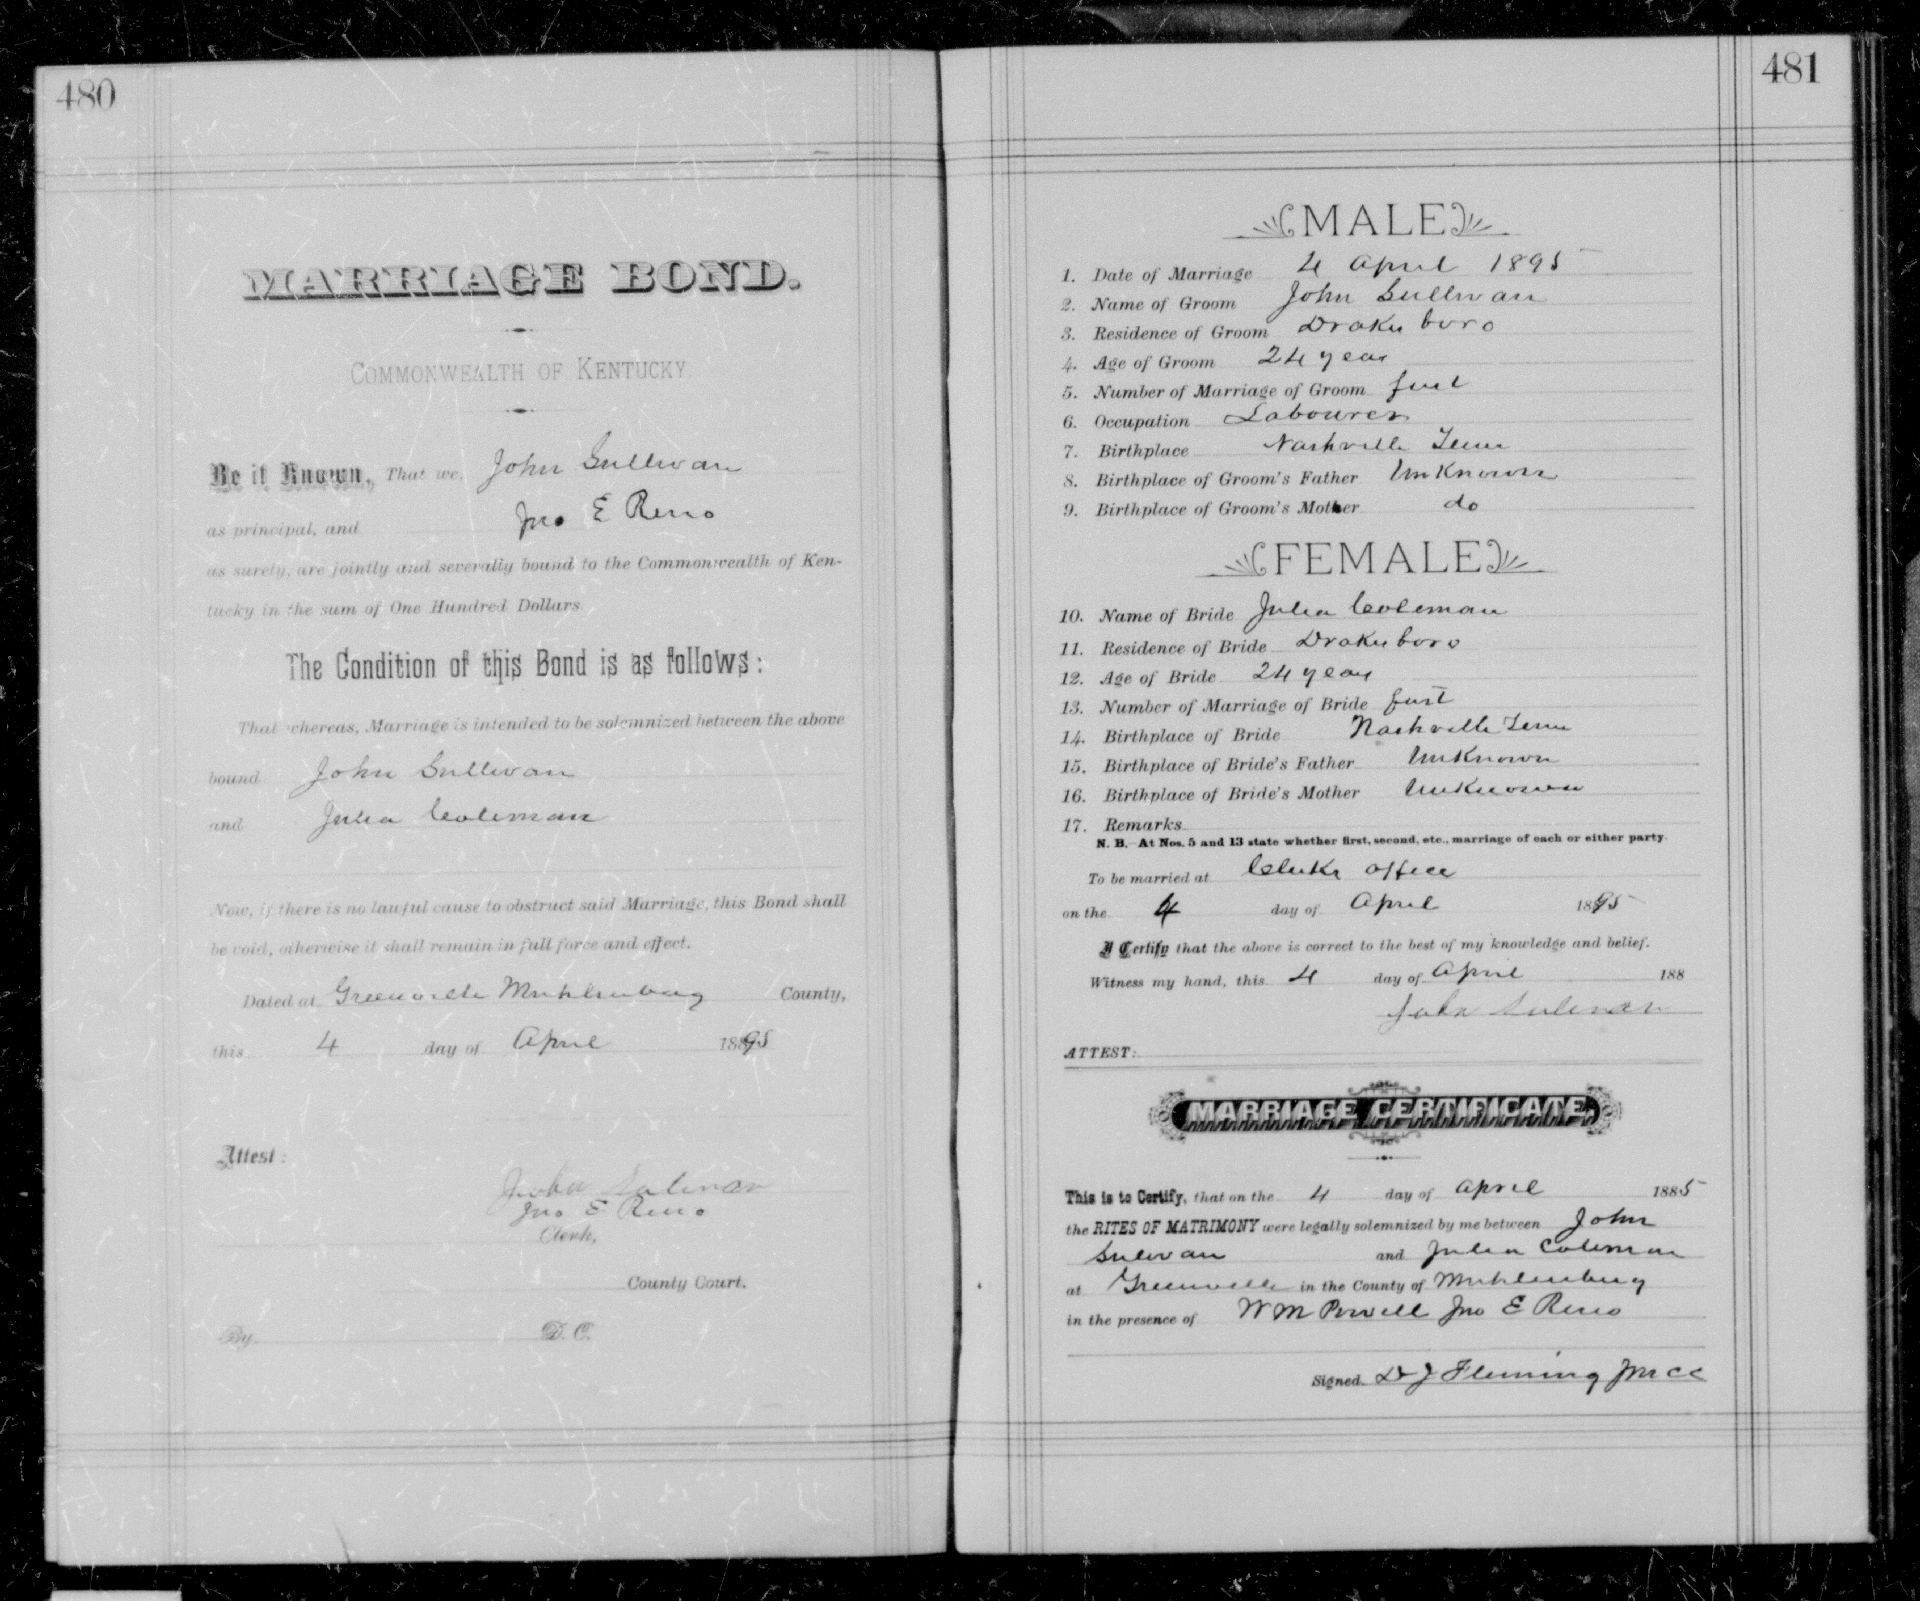 480
MARRIAGE BOND.
COMMONWEALTH OF KENTUCKY.
Be it Known, That we, John Sullivan
as principal, and Jno E Reno
as surety, are jointly and severally bound to the Commonwealth of Ken-
tucky in the sum of One Hundred Dollars.
The Condition of this Bond is as follows:
That whereas, Marriage is intended to be solemnized between the above
bound John Sullivan
and Julia Coleman
Now, if there is no lawful cause to obstruct said Marriage, this Bond shall
be void, otherwise it shall remain in full force and effect.
Dated at Greenville Muhlenburg County,
this 4 day of April 1895
Attest:
John Sulivan
Jno E Reno
Clerk,
County Court.
By D. C.
481
MALE
1. Date of Marriage 4 April 1895
2. Name of Groom John Sullivan
3. Residence of Groom Drakesboro
4. Age of Groom 24 year
5. Number of Marriage of Groom first
6. Occupation Labourer
7. Birthplace Nashville Tenn
8. Birthplace of Groom's Father UnKnown
9. Birthplace of Groom's Mother do
FEMALE
10. Name of Bride Julia Coleman
11. Residence of Bride Drakesboro
12. Age of Bride 24 years
13. Number of Marriage of Bride first
14. Birthplace of Bride Nashville Tenn
15. Birthplace of Bride's Father UnKnown
16. Birthplace of Bride's Mother UnKnown
17. Remarks
N. B.—At Nos. 5 and 13 state whether first, second, etc., marriage of each or either party.
To be married at Clerks office
on the 4 day of April 1895
I Certify that the above is correct to the best of my knowledge and belief.
Witness my hand, this 4 day of April 188
John Sulivan
ATTEST:
MARRIAGE CERTIFICATE.
This is to Certify, that on the 4 day of April 1885
the RITES OF MATRIMONY were legally solemnized by me between John
Sulivan and Julia Coleman
at Greenville in the County of Muhlenburg
in the presence of W M Powell Jno E Reno
Signed. D J Fleming JMCC